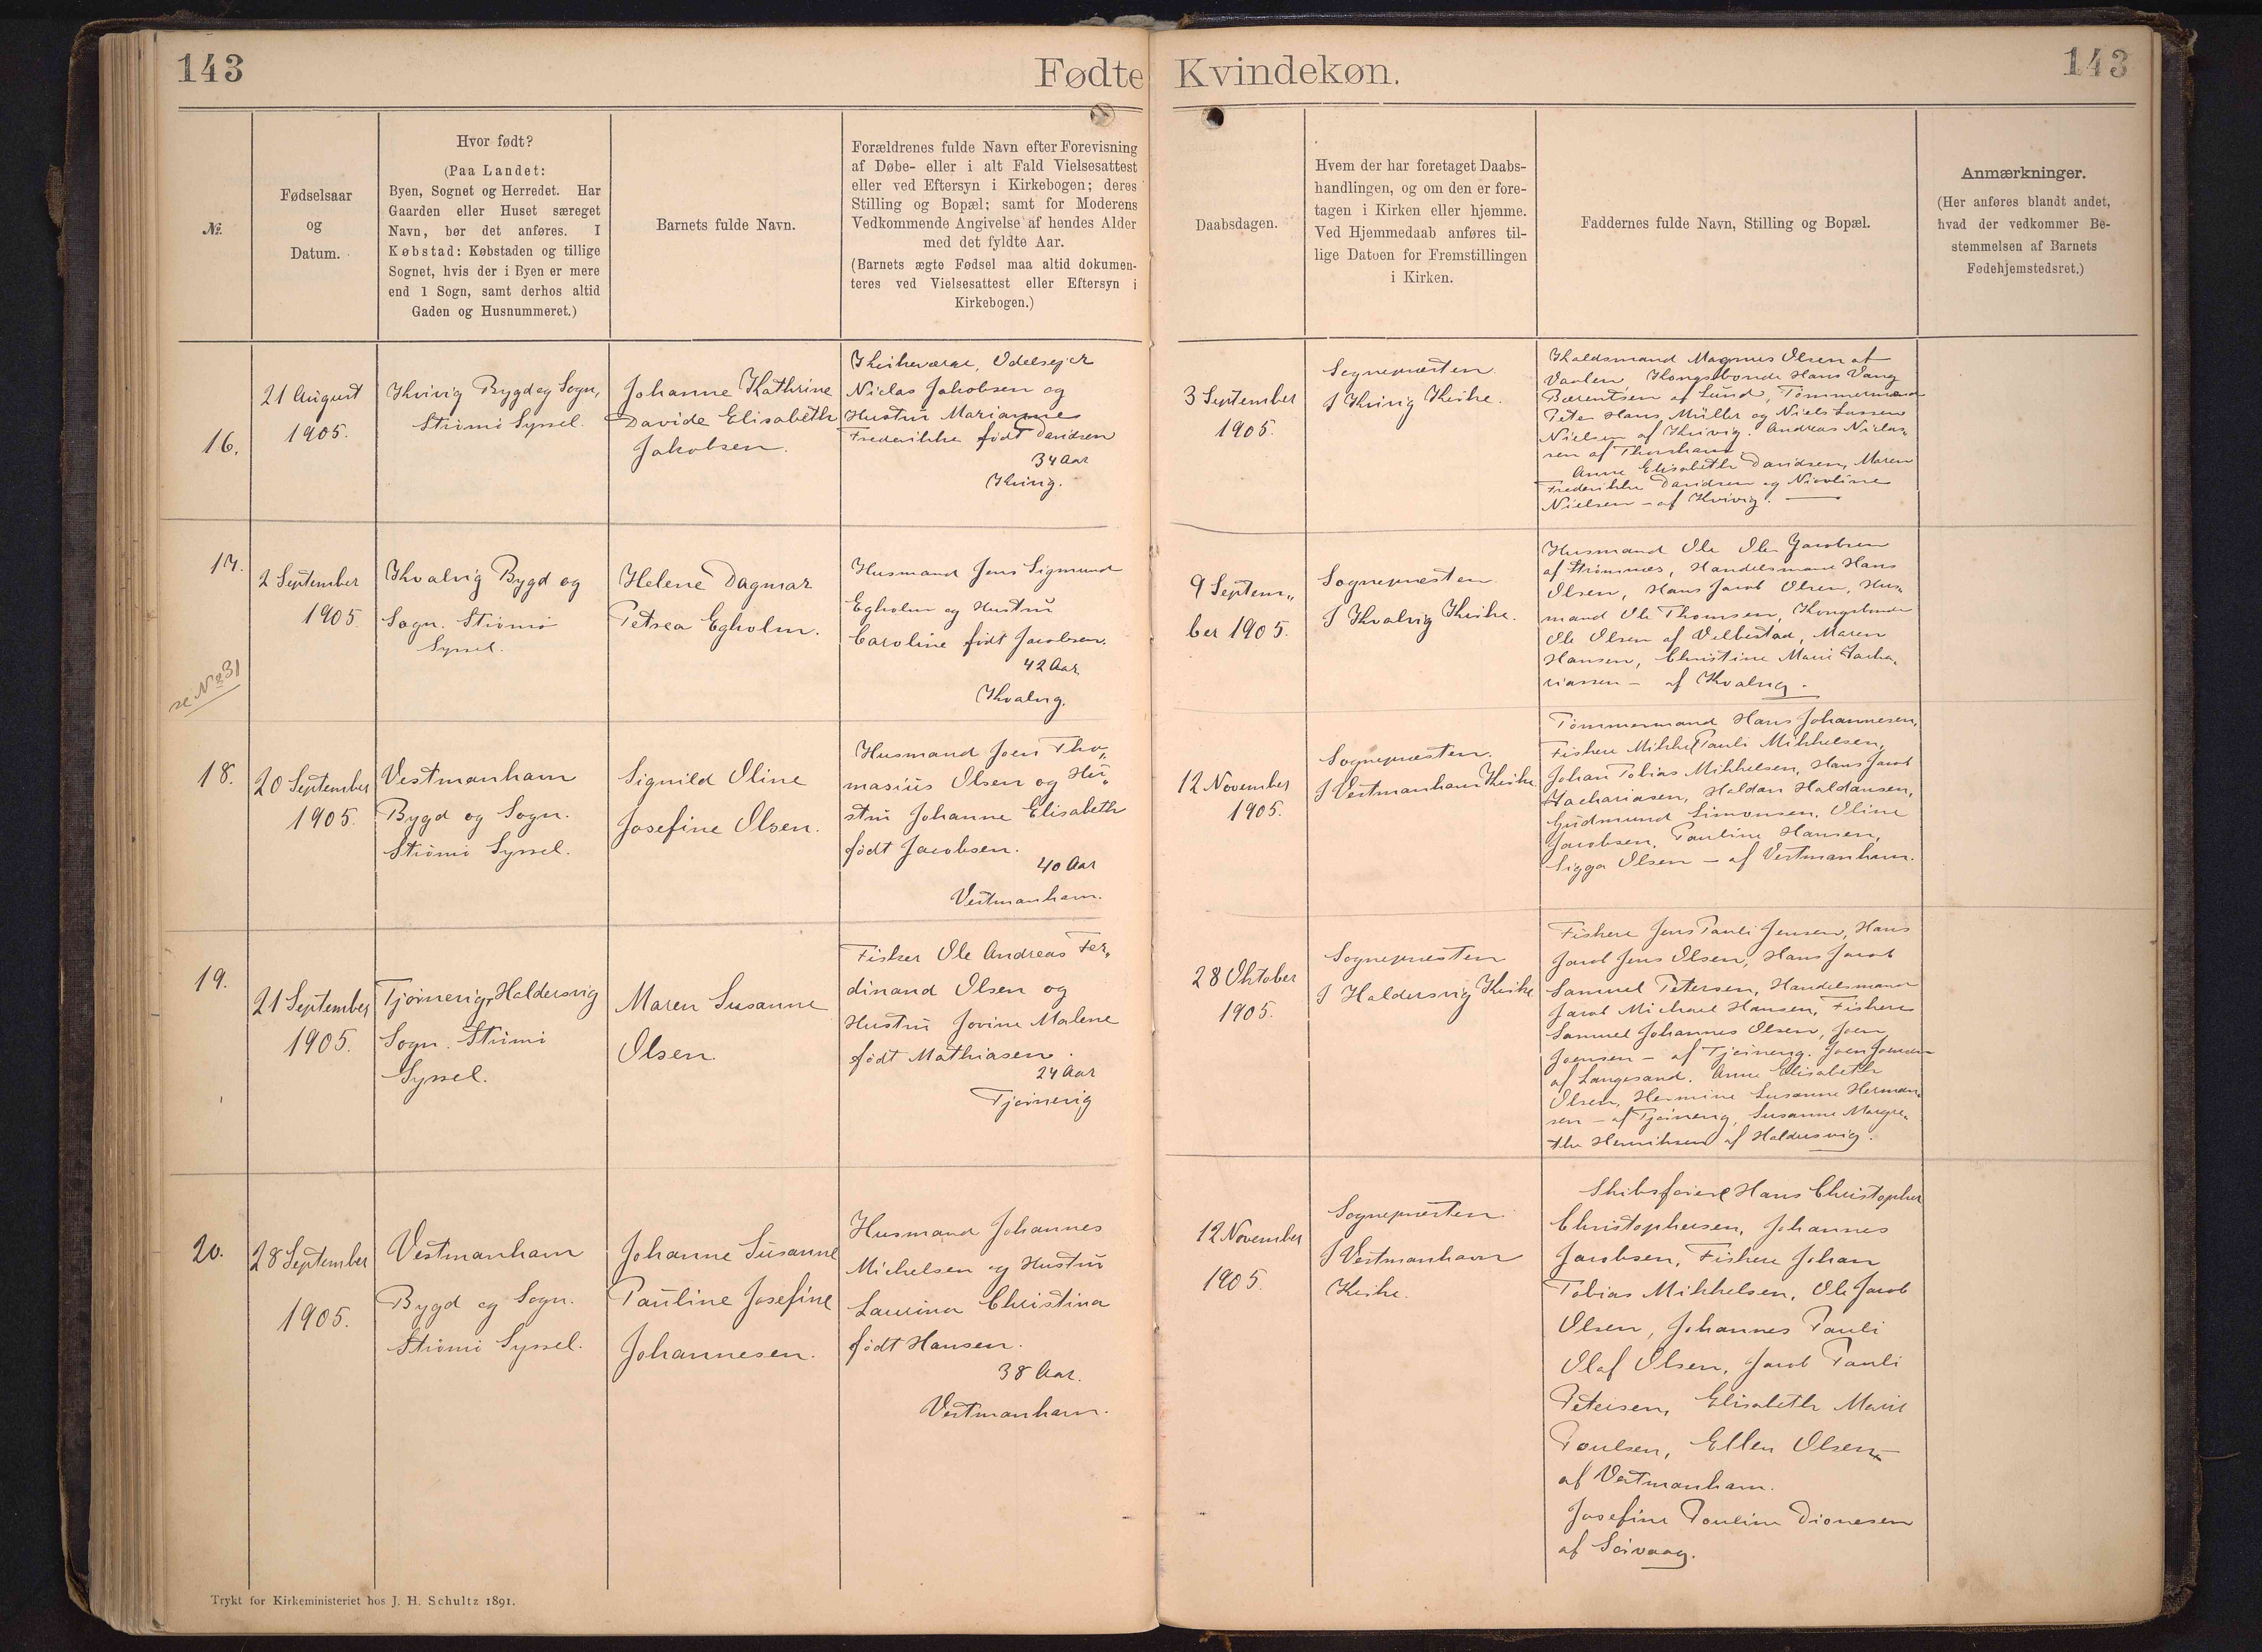 143
Fødte Kvindekøn.
143
№.
Fødselsaar
og
Datum.
Hvor født?
(Paa Landet:
Byen, Sognet og Herredet. Har
Gaarden eller Huset særeget
Navn, bør det anføres. I
Købstad: Købstaden og tillige
Sognet, hvis der i Byen er mere
end 1 Sogn, samt derhos altid
Gaden og Husnummeret.)
Barnets fulde Navn.
Forældrenes fulde Navn efter Forevisning
af Døbe- eller i alt Fald Vielsesattest
eller ved Eftersyn i Kirkebogen; deres
Stilling og Bopæl; samt for Moderens
Vedkommende Angivelse af hendes Alder
med det fyldte Aar.
(Barnets ægte Fødsel maa altid dokumen-
teres ved Vielsesattest eller Eftersyn i
Kirkebogen.)
Daabsdagen.
Hvem der har foretaget Daabs-
handlingen, og om den er fore-
tagen i Kirken eller hjemme.
Ved Hjemmedaab anføres til-
lige Datoen for Fremstillingen
i Kirken.
Faddernes fulde Navn, Stilling og Bopæl.
Anmærkninger.
(Her anføres blandt andet,
hvad der vedkommer Be-
stemmelsen af Barnets
Fødehjemstedsret.)
16.
21 August
1905.
Kvivig Bygd og Sogn,
Strömö Syssel.
Johanne Kathrine
Davide Elisabeth
Jakobsen.
Kirkeværge, Odelsejer
Niclas Jakobsen og
Hustru Marianne
Frederikke født Davidsen
34 Aar
Kvivig.
3 September
1905.
Sognepræsten
I Kvivig Kirke.
Magnus Olsen af
Kongsbonde Hans Vang
Bærentsen af Lund, Tømmermænd
Peter Hans Müller og Niels Lassen
Nielsen af Kvivig. Andreas Niclas-
sen af Thorshavn
Anne Elisabeth Davidsen, Maren
Frederikke Davidsen og Nicoline
Nielsen - af Kvivig.
17.
se No 31
2 September
1905.
Kvalvig Bygd og
Sogn. Strömö
Syssel.
Helene Dagmar
Petrea Egholm.
Husmand Jens Sigmund
Egholm og Hustru
Caroline født Jacobsen.
42 Aar
Kvalvig.
9 Septem-
ber 1905.
Sognepræsten
I Kvalvig Kirke.
Husmand Ole Ole Jacobsen
af Strømnæs, Handelsmand Hans
Olsen, Hans Jacob Olsen, Hus-
mand Ole Thomsen, Kongsbonde
Ole Olsen af Velbestad, Maren
Hansen, Christine Marie Zacha-
riassen - af Kvalvig.
18.
20 September
1905.
Vestmanhavn
Bygd og Sogn.
Strömö Syssel.
Signild Oline
Josefine Olsen.
Husmand Joen Tho-
masius Olsen og Hu-
stru Johanne Elisabeth
født Jacobsen.
40 Aar
Vestmanhavn.
12 November
1905.
Sognepræsten.
I Vestmanhavn Kirke
Tømmermand Hans Johannesen,
Fiskere Mikkel Pauli Mikkelsen,
Johan Tobias Mikkelsen, Hans Jacob
Zachariasen, Haldan Haldansen,
Gudmund Simonsen, Oline
Jacobsen, Pauline Hansen,
Sigga Olsen - af Vestmanhavn.
19.
21 September
1905.
Tjörnevig, Haldersvig
Sogn. Strömö
Syssel.
Maren Susanne
Olsen.
Fisker Ole Andreas Fer-
dinand Olsen og
Hustru Jovine Malene
født Mathiasen.
24 Aar
Tjörnevig
28 Oktober
1905.
Sognepræsten
I Haldersvig Kirke
Fiskere Jens Pauli Jensen, Hans
Jacob Jens Olsen, Hans Jacob
Samuel Petersen, Handelsmand
Jacob Michael Hansen, Fiskere
Samuel Johannes Olsen, Joen
Joensen - af Tjörnevig. Joen Joensen
af Langesand. Anne Elisabeth
Olsen, Hermine Susanne Herman-
sen - af Tjörnevig, Susanne Margre-
the Henriksen af Haldersvig.
20.
28 September
1905.
Vestmanhavn
Bygd og Sogn.
Strömö Syssel.
Johanne Susanne
Pauline Josefine
Johannesen.
Husmand Johannes
Michelsen og Hustru
Laurina Christina
født Hansen.
38 Aar.
Vestmanhavn.
12 November
1905.
Sognepræsten.
I Vestmanhavn
Kirke.
Skibsförere Hans Christopher
Christophersen, Johannes
Jacobsen, Fiskere Johan
Tobias Mikkelsen, Ole Jacob
Olsen, Johannes Pauli
Olaf Olsen, Jacob Pauli
Petersen, Elisabeth Marie
Poulsen, Ellen Olsen -
af Vestmanhavn.
Josefine Pouline Dionesen
af Sörvaag.
Trykt for Kirkeministeriet hos J. H. Schultz 1891.